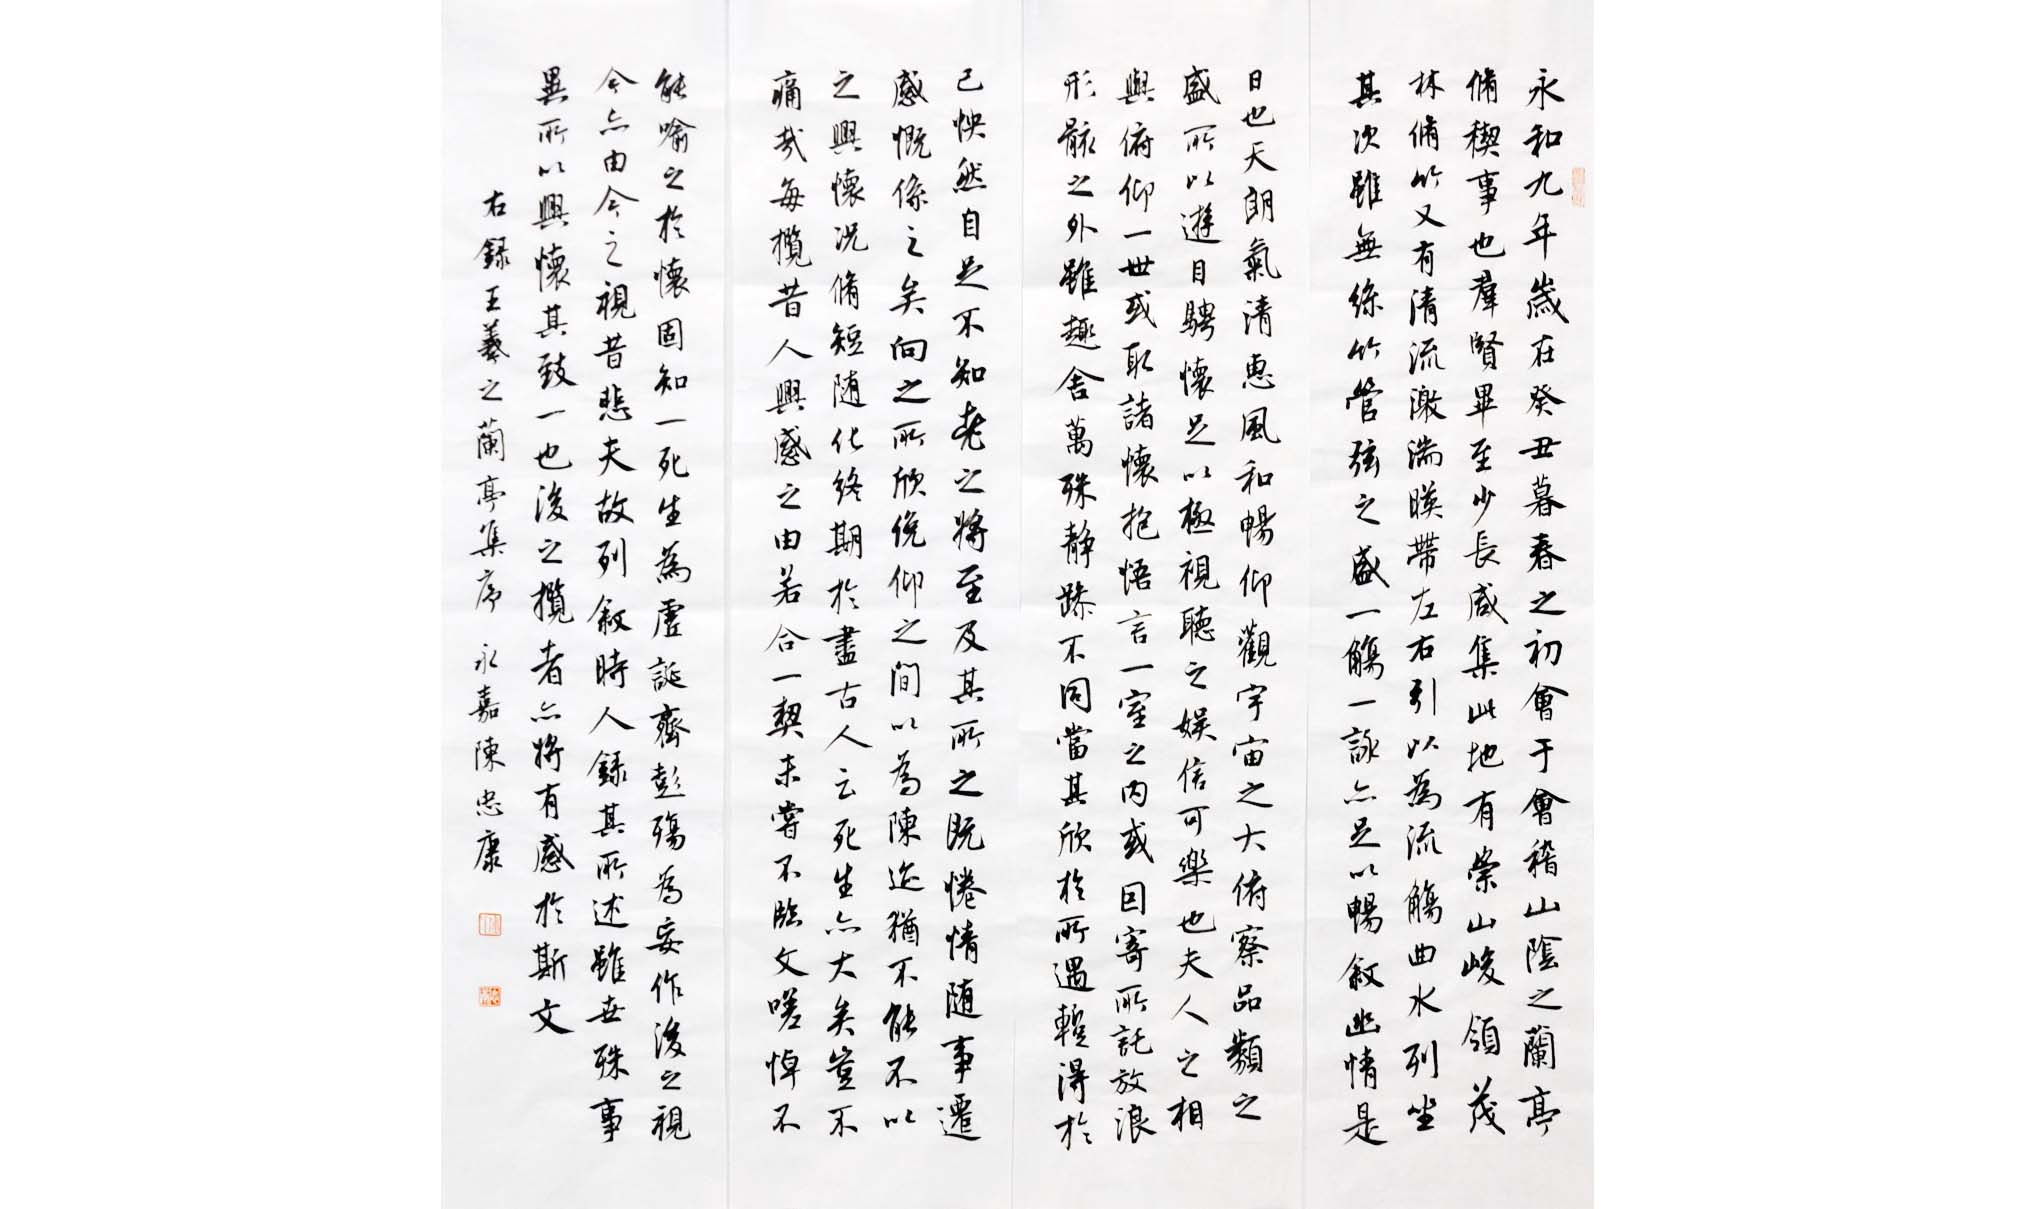 永和九年歲在癸丑暮春之初會于會稽山陰之蘭亭
脩稧事也羣賢畢至少長咸集此地有崇山峻領茂
林脩竹又有清流激湍暎帶左右引以為流觴曲水列坐
其次雖無絲竹管弦之盛一觴一詠亦足以暢敘幽情是
日也天朗氣清惠風和暢仰觀宇宙之大俯察品類之
盛所以遊目騁懷足以極視聽之娛信可樂也夫人之相
與俯仰一世或取諸懷抱悟言一室之內或因寄所託放浪
形骸之外雖趣舍萬殊静躁不同當其欣於所遇暫得於
己怏然自足不知老之將至及其所之既惓情随事遷
感慨係之矣向之所欣俛仰之間以為陳迹猶不能不以
之興懷況脩短随化終期於盡古人云死生亦大矣豈不
痛哉每攬昔人興感之由若合一契未嘗不臨文嗟悼不
能喻之於懷固知一死生為虛誕齊彭殤為妄作後之視
今亦由今之視昔悲夫故列敘時人録其所述雖世殊事
異所以興懷其致一也後之攬者亦將有感於斯文
右録王羲之蘭亭集序 永嘉陳忠康